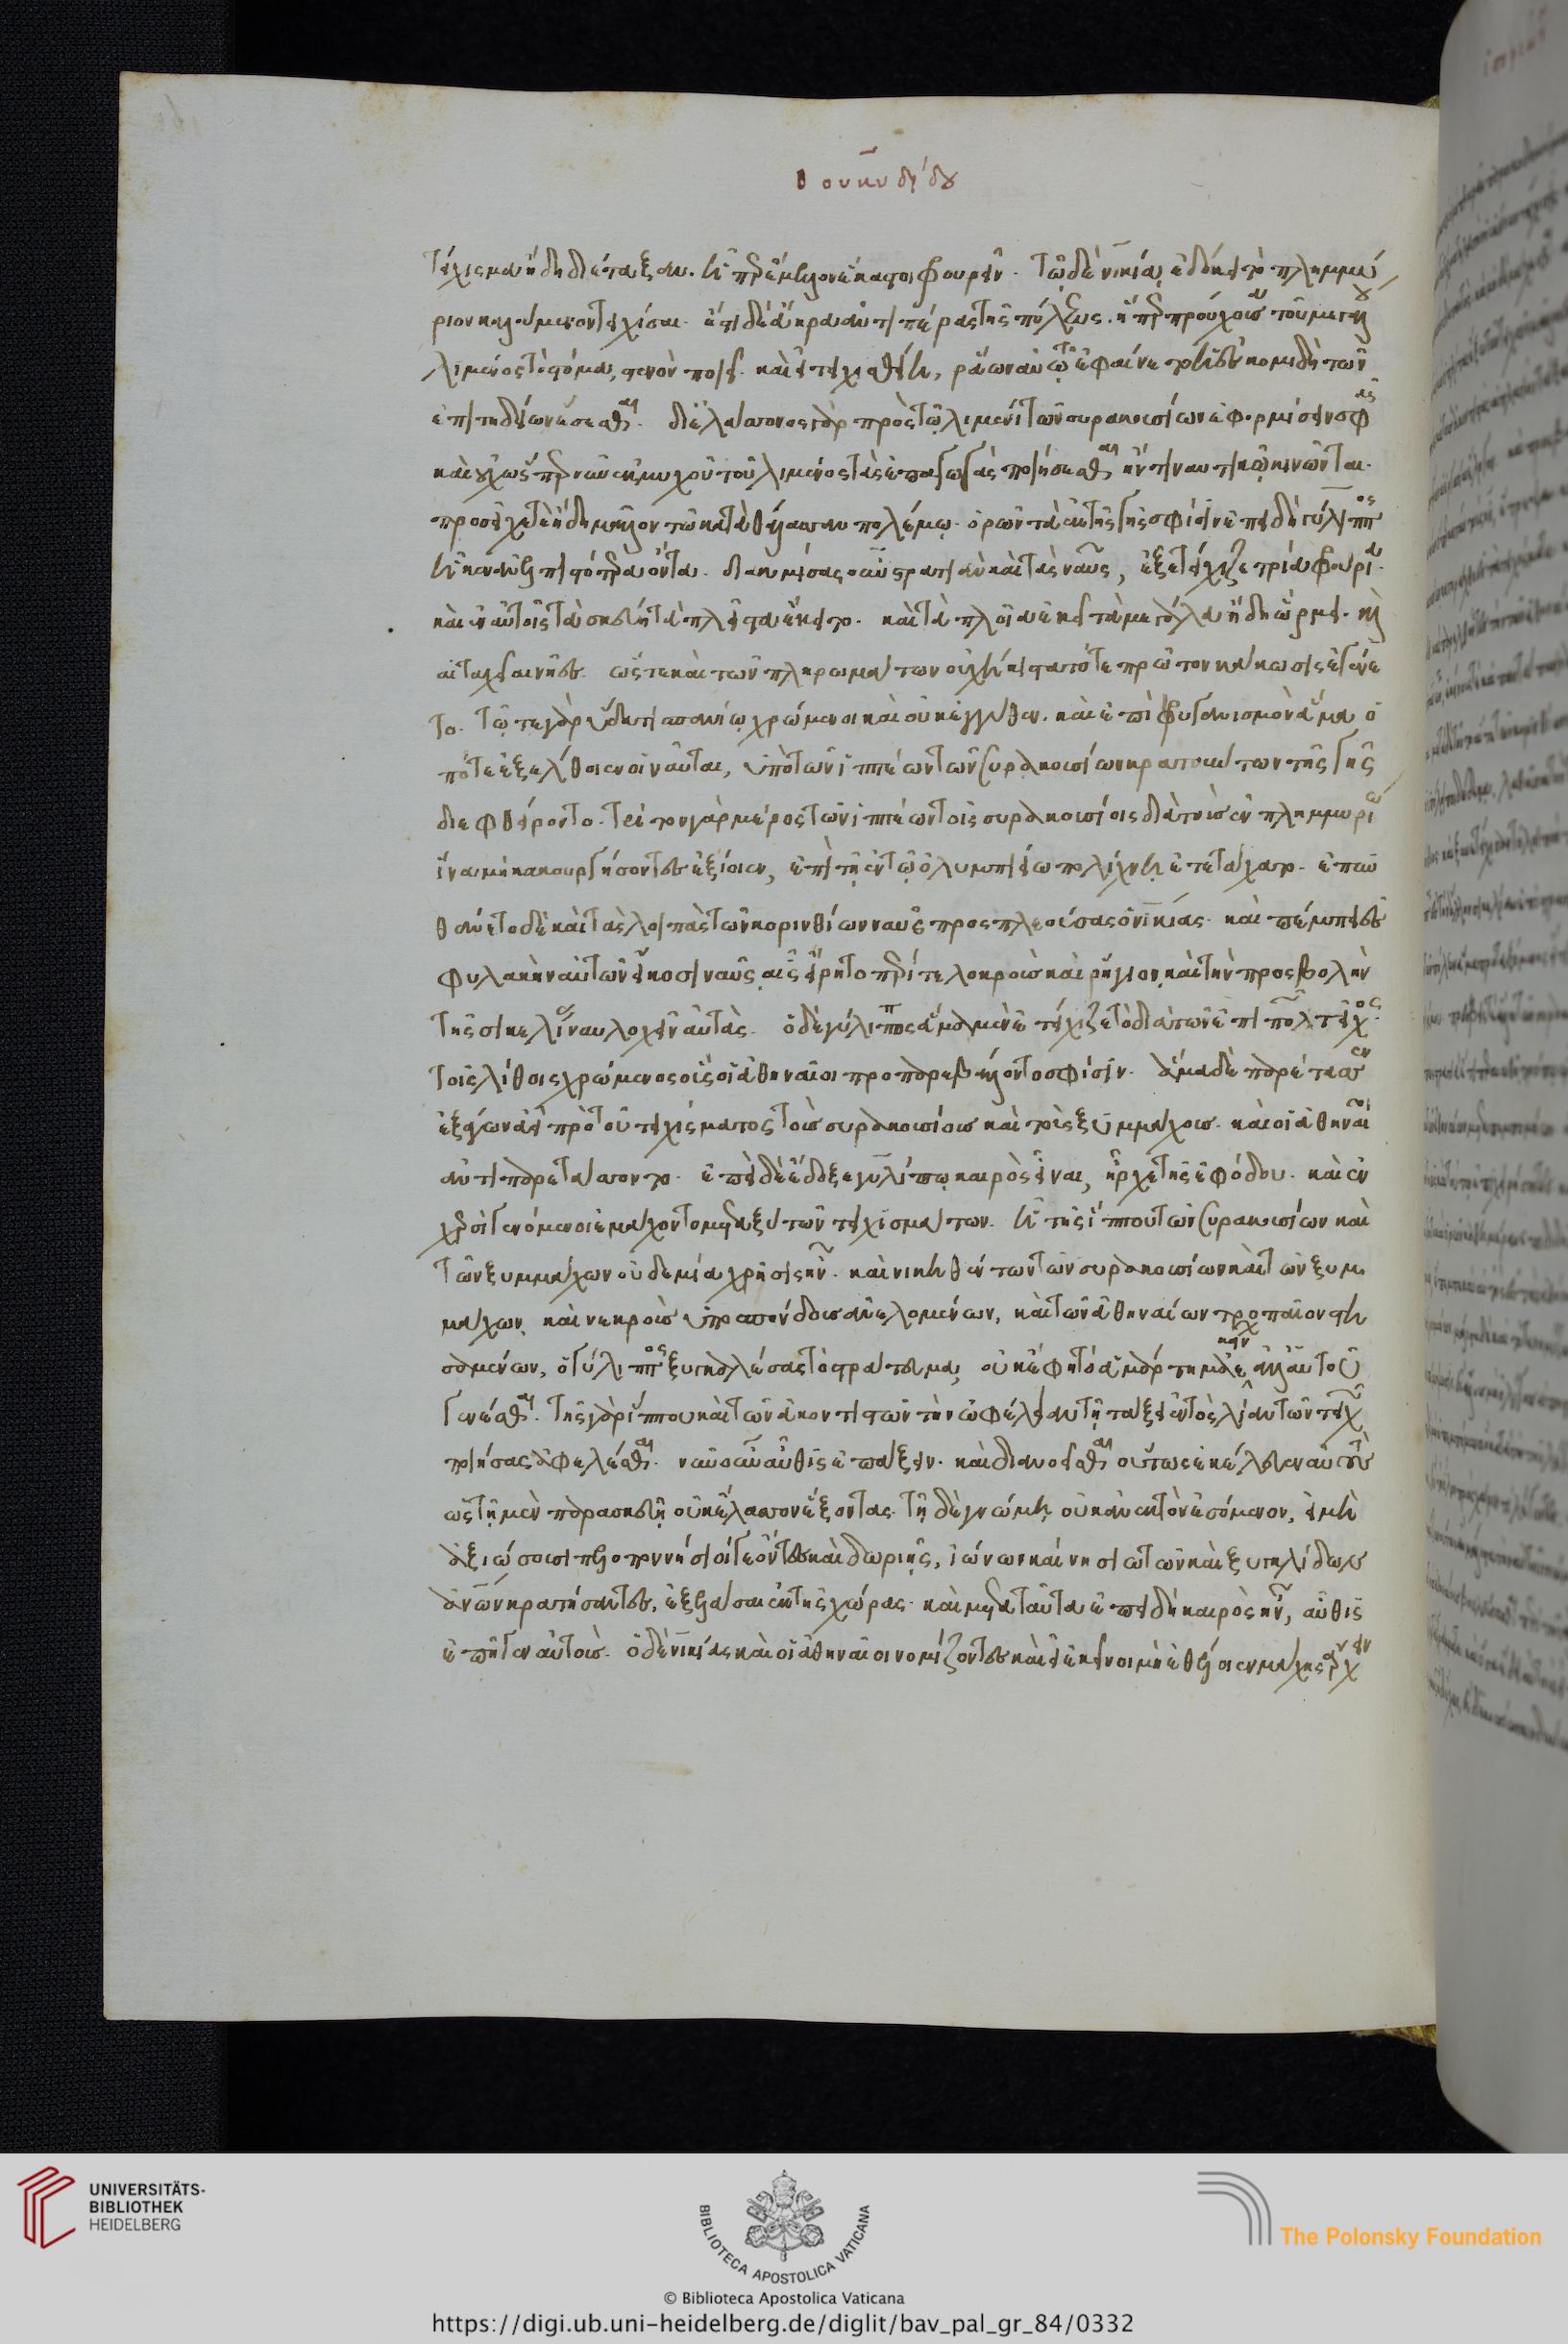 Θουκυδίδου
τείχισμα ἤδη διέταξαν. ᾗπερ ἔμελλον ἕκαστοι φρουρεῖν. τῷ δὲ νικίᾳ, ἐδόκει τὸ πλημμύ
ριον καλούμενον τειχίσαι. ἔστι δὲ ἄκρα ἀντιπέρας τῆς πόλεως. ἥπερ προύχουσα τοῦ μεγάλου
λιμένος τὸ στόμα, στενὸν ποιεῖ. καὶ εἰ τειχισθείη, ῥᾴων αὐτῷ ἐφαίνετο ἡ ἐσκομιδὴ τῶν
ἐπιτηδείων ἔσεσθαι. δι' ἐλάσσονος γὰρ πρὸς τῷ λιμένι τῶν συρακουσίων ἐφορμίσειν σφᾶς
καὶ οὐχ ὥσπερ νῦν ἐκ μυχοῦ τοῦ λιμένος τὰς ἐπαγωγὰς ποιήσεσθαι ἤν τι ναυτικῷ κινῶνται.
προσεῖχέ τε ἤδη μᾶλλον τῷ κατὰ θάλασσαν πολέμῳ. ὁρῶν τὰ ἐκ τῆς γῆς σφίσιν ἐπειδὴ γύλιππος
ἧκεν ἀνελπιστότερα ὄντα. διακομίσας οὖν στρατιὰν καὶ τὰς ναῦς, ἐξετείχιζε τρία φρούρια.
καὶ ἐν αὐτοῖς τὰ σκεύη τὰ πλεῖστα ἔκειτο. καὶ τὰ πλοῖα ἐκεῖ τὰ μεγάλα ἤδη ὥρμει. καὶ
αἱ ταχεῖαι νῆες. ὥστε καὶ τῶν πληρωμάτων οὐχ ἥκιστα τότε πρῶτον κάκωσις ἐγένε
το. τῷ τε γὰρ ὕδατι σπανίῳ χρώμενοι καὶ οὐκ ἐγγύθεν. καὶ ἐπὶ φρυγανισμὸν ἅμα ὁ
πότε ἐξέλθοιεν οἱ ναῦται, ὑπὸ τῶν ἱππέων τῶν συρακουσίων κρατούντων τῆς γῆς
διεφθείροντο. τρίτον γὰρ μέρος τῶν ἱππέων τοῖς συρακουσίοις διὰ τοὺς ἐν πλημμυρίῳ
ἵνα μὴ κακουργήσοντες ἐξίοιεν, ἐπὶ τῇ ἐν τῷ ὀλυμπιείῳ πολίχνῃ ἐτετάχατο. ἐπυν
θάνετο δὲ καὶ τὰς λοιπὰς τῶν κορινθίων ναῦς προσπλεούσας ὁ νικίας. καὶ πέμπει ἐς
φυλακὴν αὐτῶν εἴκοσι ναῦς, αἷς εἴρητο περί τε λοκροὺς καὶ ῥήγιον, καὶ τὴν προσβολὴν
τῆς σικελίας ναυλοχεῖν αὐτάς. ὁ δὲ γύλιππος ἅμα μὲν ἐτείχιζε τὸ διὰ τῶν ἐπιπολῶν τεῖχος.
τοῖς λίθοις χρώμενος οἷς οἱ ἀθηναῖοι προπαρεβάλοντο σφίσιν. ἅμα δὲ παρέτασσεν
ἐξάγων ἀεὶ πρὸ τοῦ τειχίσματος τοὺς συρακουσίους καὶ τοὺς ξυμμάχους. καὶ οἱ ἀθηναῖοι
ἀντιπαρετάσσοντο. ἐπειδὴ δὲ ἔδοξε γυλίππῳ καιρὸς εἶναι, ἦρχε τῆς ἐφόδου. καὶ ἐν
χερσὶ γενόμενοι ἐμάχοντο μεταξὺ τῶν τειχισμάτων. ᾗ τῆς ἵππου τῶν συρακουσίων καὶ
τῶν ξυμμάχων οὐδεμία χρῆσις ἦν. καὶ νικηθέντων τῶν συρακουσίων καὶ τῶν ξυμ
μάχων, καὶ νεκροὺς ὑποσπόνδους ἀνελομένων, καὶ τῶν ἀθηναίων τροπαῖον στη
σαμένων, ὁ γύλιππος ξυγκαλέσας τὸ στράτευμα, οὐκ ἔφη τὸ ἁμάρτημα ἐκείνων ἀλλ' αὑτοῦ
γενέσθαι. τῆς γὰρ ἵππου καὶ τῶν ἀκοντιστῶν τὴν ὠφέλειαν τῇ τάξει ἐντὸς λίαν τῶν τειχῶν
ποιήσας ἀφελέσθαι. νῦν οὖν αὖθις ἐπάξειν. καὶ διανοεῖσθαι οὕτως ἐκέλευεν αὐτοὺς
ὡς τῇ μὲν παρασκευῇ οὐκ ἔλασσον ἕξοντας. τῇ δὲ γνώμῃ οὐκ ἀνεκτὸν ἐσόμενον, εἰ μὴ
ἀξιώσουσι πελοποννήσιοί τε ὄντες καὶ δωριῆς, ἰώνων καὶ νησιωτῶν καὶ ξυγκλύδων
ἀνθρώπων κρατήσαντες, ἐξελάσαι ἐκ τῆς χώρας. καὶ μετὰ ταῦτα ἐπειδὴ καιρὸς ἦν, αὖθις
ἐπῆγεν αὐτούς. ὁ δὲ νικίας καὶ οἱ ἀθηναῖοι νομίζοντες καὶ εἰ ἐκεῖνοι μὴ ἐθέλοιεν μάχης ἄρχειν
UNIVERSITÄTS-
BIBLIOTHEK
HEIDELBERG
BIBLIOTECA APOSTOLICA VATICANA
The Polonsky Foundation
© Biblioteca Apostolica Vaticana
https://digi.ub.uni-heidelberg.de/diglit/bav_pal_gr_84/0332